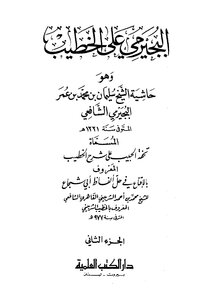 البجيرمي على الخطيب
وهو
حاشية الشيخ سليمان بن محمد بن عمر
البجيرمي الشافعي
المتوفى سنة ١٢٢١ هـ
المسماة
تحفة الحبيب على شرح الخطيب
المعروف
بالإقناع في حل ألفاظ أبي شجاع
للشيخ محمد بن أحمد الشربيني القاهري الشافعي
المعروف بالخطيب الشربيني
المتوفى سنة ٩٧٧ هـ
الجزء الثاني
دار الكتب العلمية
بيروت - لبنان